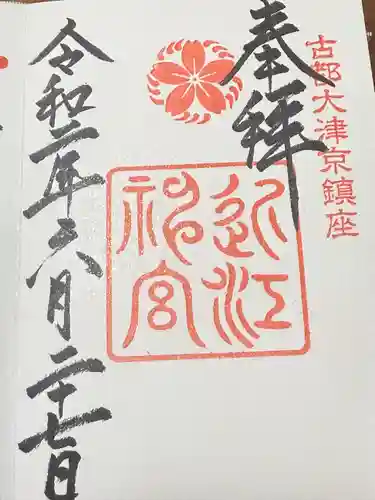 古都大津京鎮座
奉拝
近江神宮
令和二年六月二十七日